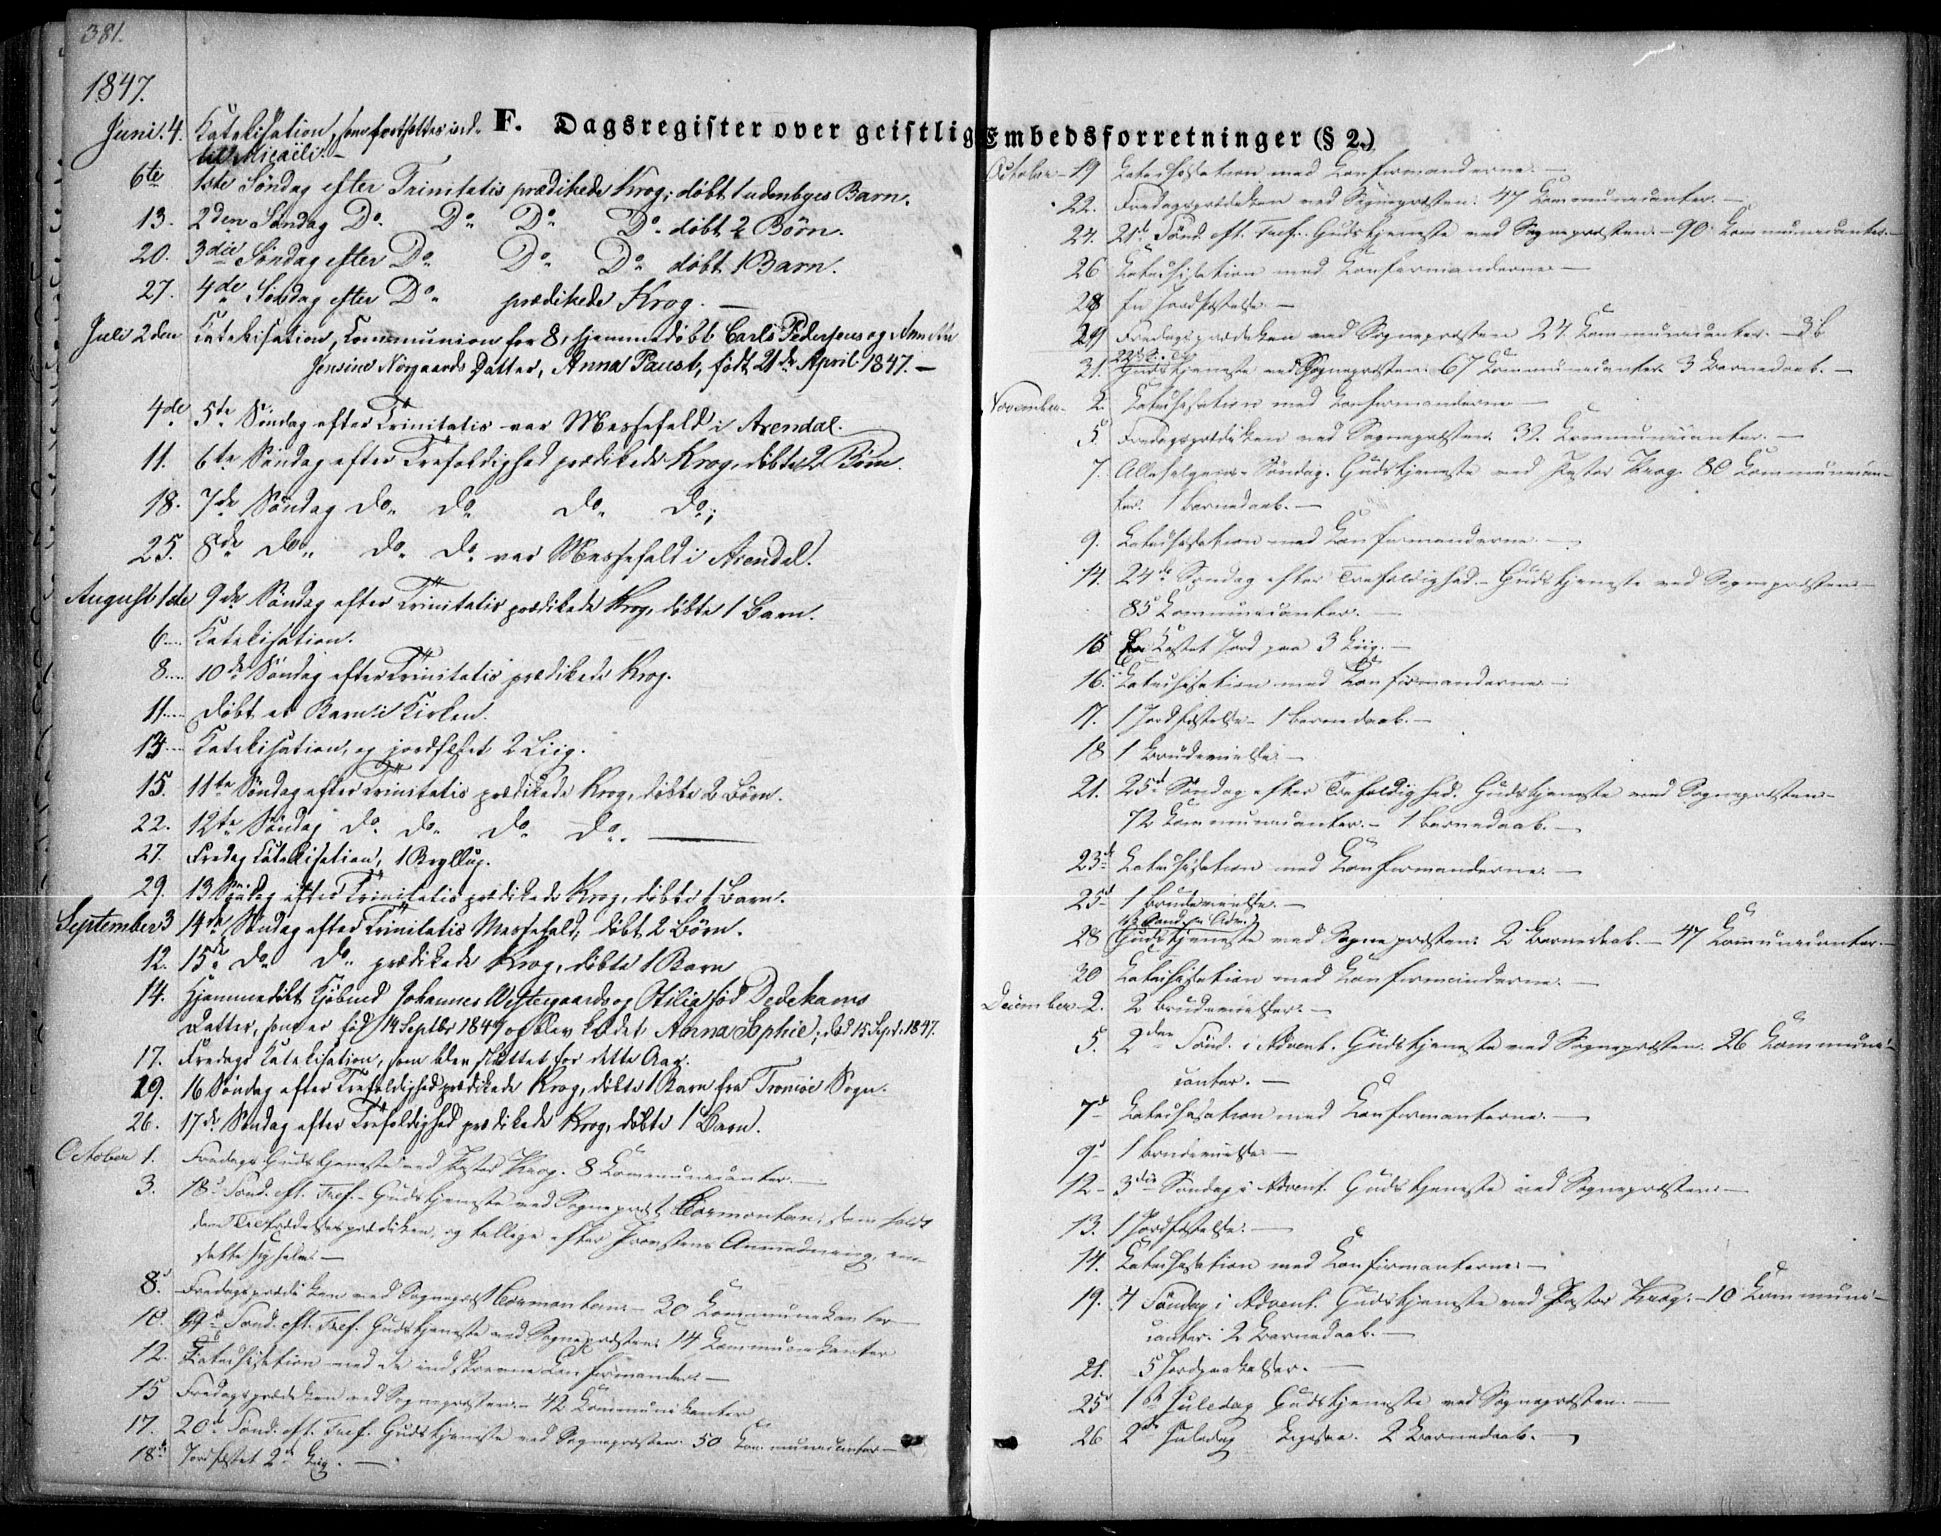 381.
1847.
F. Dagsregister over geistlig Embedsforretninger (§ 2.)
Juni. 4. Katekisation, som fortsættes ind-
til Micaëli.-
6te 1ste Søndag efter Trinitatis prædikede Krog; døbt 1 udenbyes Barn.
13. 2den Søndag Do Do Do Do døbt 2 Børn.
20. 3die Søndag efter Do Do Do døbt 1 Barn.
27. 4de Søndag efter Do prædikede Krog. —
Juli 2den Katekisation, Communion for 8, hjemmedøbt Carls Pedersens og
Jensine Norgaards Datter, Anna Faust, født 21de April 1847. —
4de 5te Søndag efter Trinitatis var Messefald i Arendal.
11. 6te Søndag efter Trefoldighed prædikede Krog, døbte 2 Børn.
18. 7de Søndag do do do do;
25. 8de do do do var Messefald i Arendal.
August 1ste 9de Søndag efter Trinitatis prædikede Krog, døbte 1 Barn.
6 Katekisation.
8 10de Søndag efter Trinitatis prædikede Krog.
11 døbt et Barn i Kirken.
13 Katekisation, og jordfæstet 2 Liig.
15. 11te Søndag efter Trinitatis prædikede Krog, døbte 2 Børn.
22. 12te Søndag do do do do. —
27. Fredag Katekisation, 1 Bryllup.
29. 13 Søndag efter Trinitatis prædikede Krog, døbte 1 Barn.
September 3 14de Søndag efter Trinitatis Messefald, døbt 2 Børn.
12. 15de do do prædikede Krog, døbte 1 Barn
14. Hjemmedøbt Kjøbmd Johannes Westergaards og Otilia fød Dedekams
Datter, som er fød 14 Septbr 1847 og blev kaldet Anna Sophie; død 15 Sept. 1847.
17. Fredags Katekisation, som blev sluttet for dette Aar.
19. 16 Søndag efter Trefoldighed prædikede Krog, døbte 1 Barn fra Tromøe Sogn.
26. 17de Søndag efter Trefoldighed prædikede Krog, døbte 1 Barn.
October 1. Fredags Gudstjeneste ved Pastor Krog. 8 Communicanter. —
3. 18d Sønd. eft. Tref. - Gudstjeneste ved Sognepræst, som holdt
Tiltrædelsesprædiken, og tillige efter Provstens Anmodning,
dette —
8. Fredagsprædiken ved Sognepræst — 20 Kommunikanter
10. 19d Sønd. eft. Tref. Gudstjeneste ved Sognepræsten 14 Communikanter
12. Katechisation med de indskrevne Confirmander. —
15 Fredagsprædiken ved Sognepræsten. - 42 Communikanter
17. 20d Sønd. eft. Tref. Gudstjeneste ved Sognepræsten. 50 Communicanter —
18de Jordfæstet 2de Liig. —
October - 19 Katechisation med Confirmanderne. —
22. Fredagsprædiken ved Sognepræsten. 47 Communicanter. —
24. 21d Sønd. eft. Tref. Gudstjeneste ved Sognepræsten. - 90 Communicanter. —
26 Katechisation med Confirmanderne —
28 En Jordfæstelse. —
29 Fredagsprædiken ved Sognepræsten 24 Communicanter. —
31. Gudstjeneste ved Sognepræsten. 67 Communicanter 3 Barnedaab. —
November. 2. Katechisation med Confirmanderne —
5. Fredagsprædiken ved Sognepræsten. 32 Communicanter. —
7. Allehelgens-Søndag. Gudstjeneste ved Pastor Krog. 80 Communican-
ter. 1 Barnedaab. —
9. Katechisation med Confirmanderne —
14. 24de Søndag efter Trefoldighed. - Gudstjeneste ved Sognepræsten —
85 Communicanter. —
15 Kastet Jord paa 3 Liig. —
16. Katechisation med Confirmanderne. —
17. 1 Jordfæstelse - 1 Barnedaab. —
18 1 Brudevielse. —
21. 25d Søndag efter Trefoldighed. Gudstjeneste ved Sognepræsten —
72 Communicanter. - 1 Barnedaab. —
23d Katechisation med Confirmanderne. —
25d 1 Brudevielse. —
1st Sønd. i Adv.
28 Gudstjeneste ved Sognepræsten. 2 Barnedaab. - 47 Communicanter. —
30 Katechisation med Confirmanderne. —
December 2. 2 Brudevielser. —
5. 2den Sønd. i Advent. Gudstjeneste ved Sognepræsten. 26 Communi-
canter. —
7d Katechisation med Confirmanterne. —
9d 1 Brudevielse —
12 - 3die Søndag i Advent. Gudstjeneste ved Sognepræsten. —
13. 1 Jordfæstelse. —
14. Katechisation med Confirmanterne. —
19. 4 Søndag i Advent. Gudstjeneste ved Pastor Krog. - 10 Communi-
canter. 2 Barnedaab. —
21. 5 Jordpaakastelser. —
25d 1st Juledag Gudstjeneste ved Sognepræsten. —
26 2d Juledag 2 Barnedaab. —